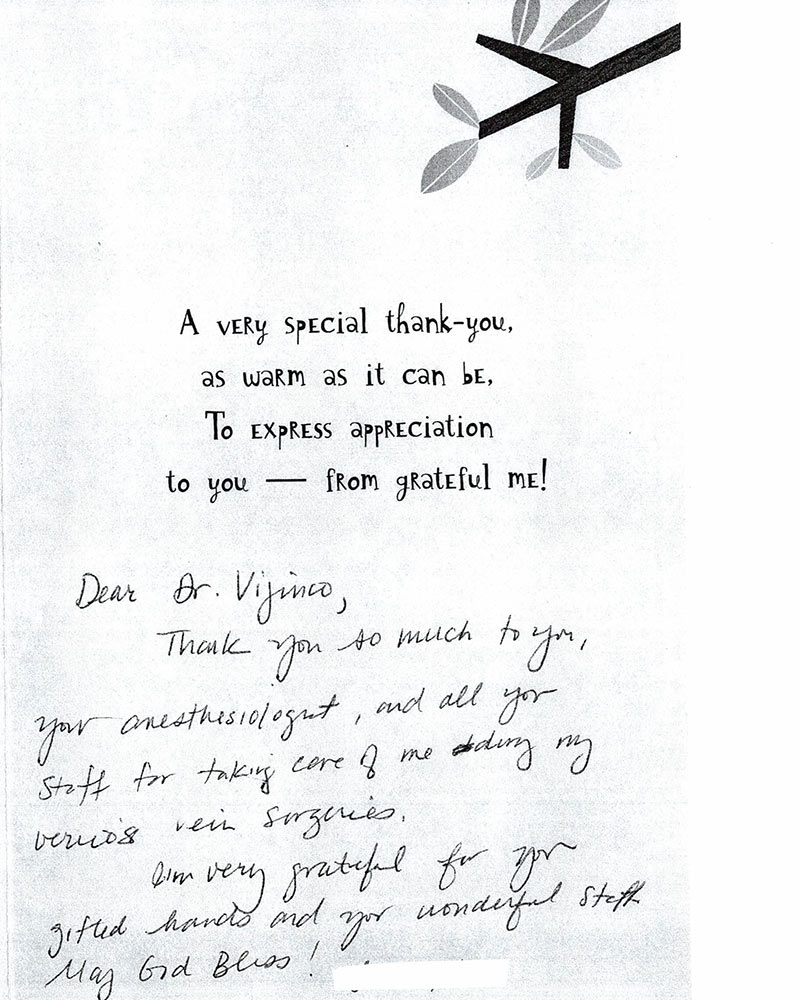 A very special thank-you,
as warm as it can be,
To express appreciation
to you — from grateful me!
Dear Dr. Vijinco,
Thank you so much to you,
your anesthesiologist, and all your
staff for taking care of me during my
vericos vein surgeries.
I'm very grateful for your
gifted hands and your wonderful staff
May God Bless!